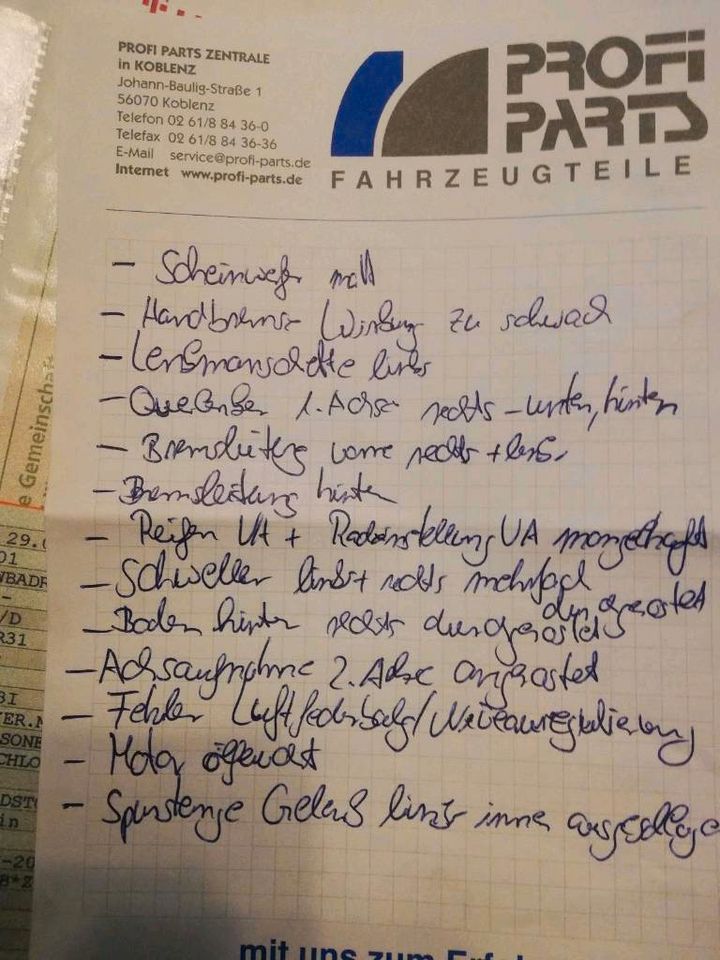 PROFI PARTS ZENTRALE
in KOBLENZ
Johann-Baulig-Straße 1
56070 Koblenz
Telefon 02 61/8 84 36-0
Telefax 02 61/8 84 36-36
E-Mail service@profi-parts.de
Internet www.profi-parts.de
PROFI
PARTS
FAHRZEUGTEILE
- Scheinwerfer matt
- Handbremse Wirkung zu schwach
- Lenkmanschette links
- Querlenker 1. Achse rechts - unten, hinten
- Bremsleitung vorne rechts + links
- Bremsleitung hinten
- Reifen VA + Radeinstellung VA mangelhaft
- Schweller links + rechts mehrfach
durchgerostet
- Boden hinten rechts durchgerostet
- Achsaufnahme 2. Achse angerostet
- Fehler Luftfederbalg/Niveauregulierung
- Motor ölfeucht
- Spurstange Gelenk links innen ausgeschlage
mit uns zum Erfo
e Gemeinschaft
29.0
01
WBADR
/D
R31
3I
ER.
SONE
CHLO
DST
in
-20
8*Z